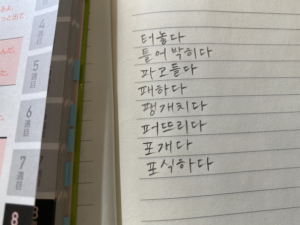 터놓다
틀어박히다
파고들다
패하다
팽개치다
퍼뜨리다
포개다
포식하다
4
週目
5
週目
6
週目
7
週目
8